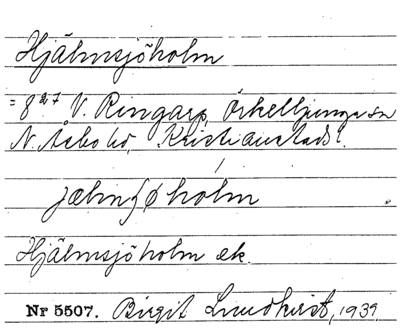 Hjälmsjöholm
= 8 27 V. Ringarp, Örkelljunga sn
N. Åsbo hd, Kristianstads l.
jælmʃøholm
Hjälmsjöholm ek.
Nr 5507. Birgit Lundkvist, 1939.